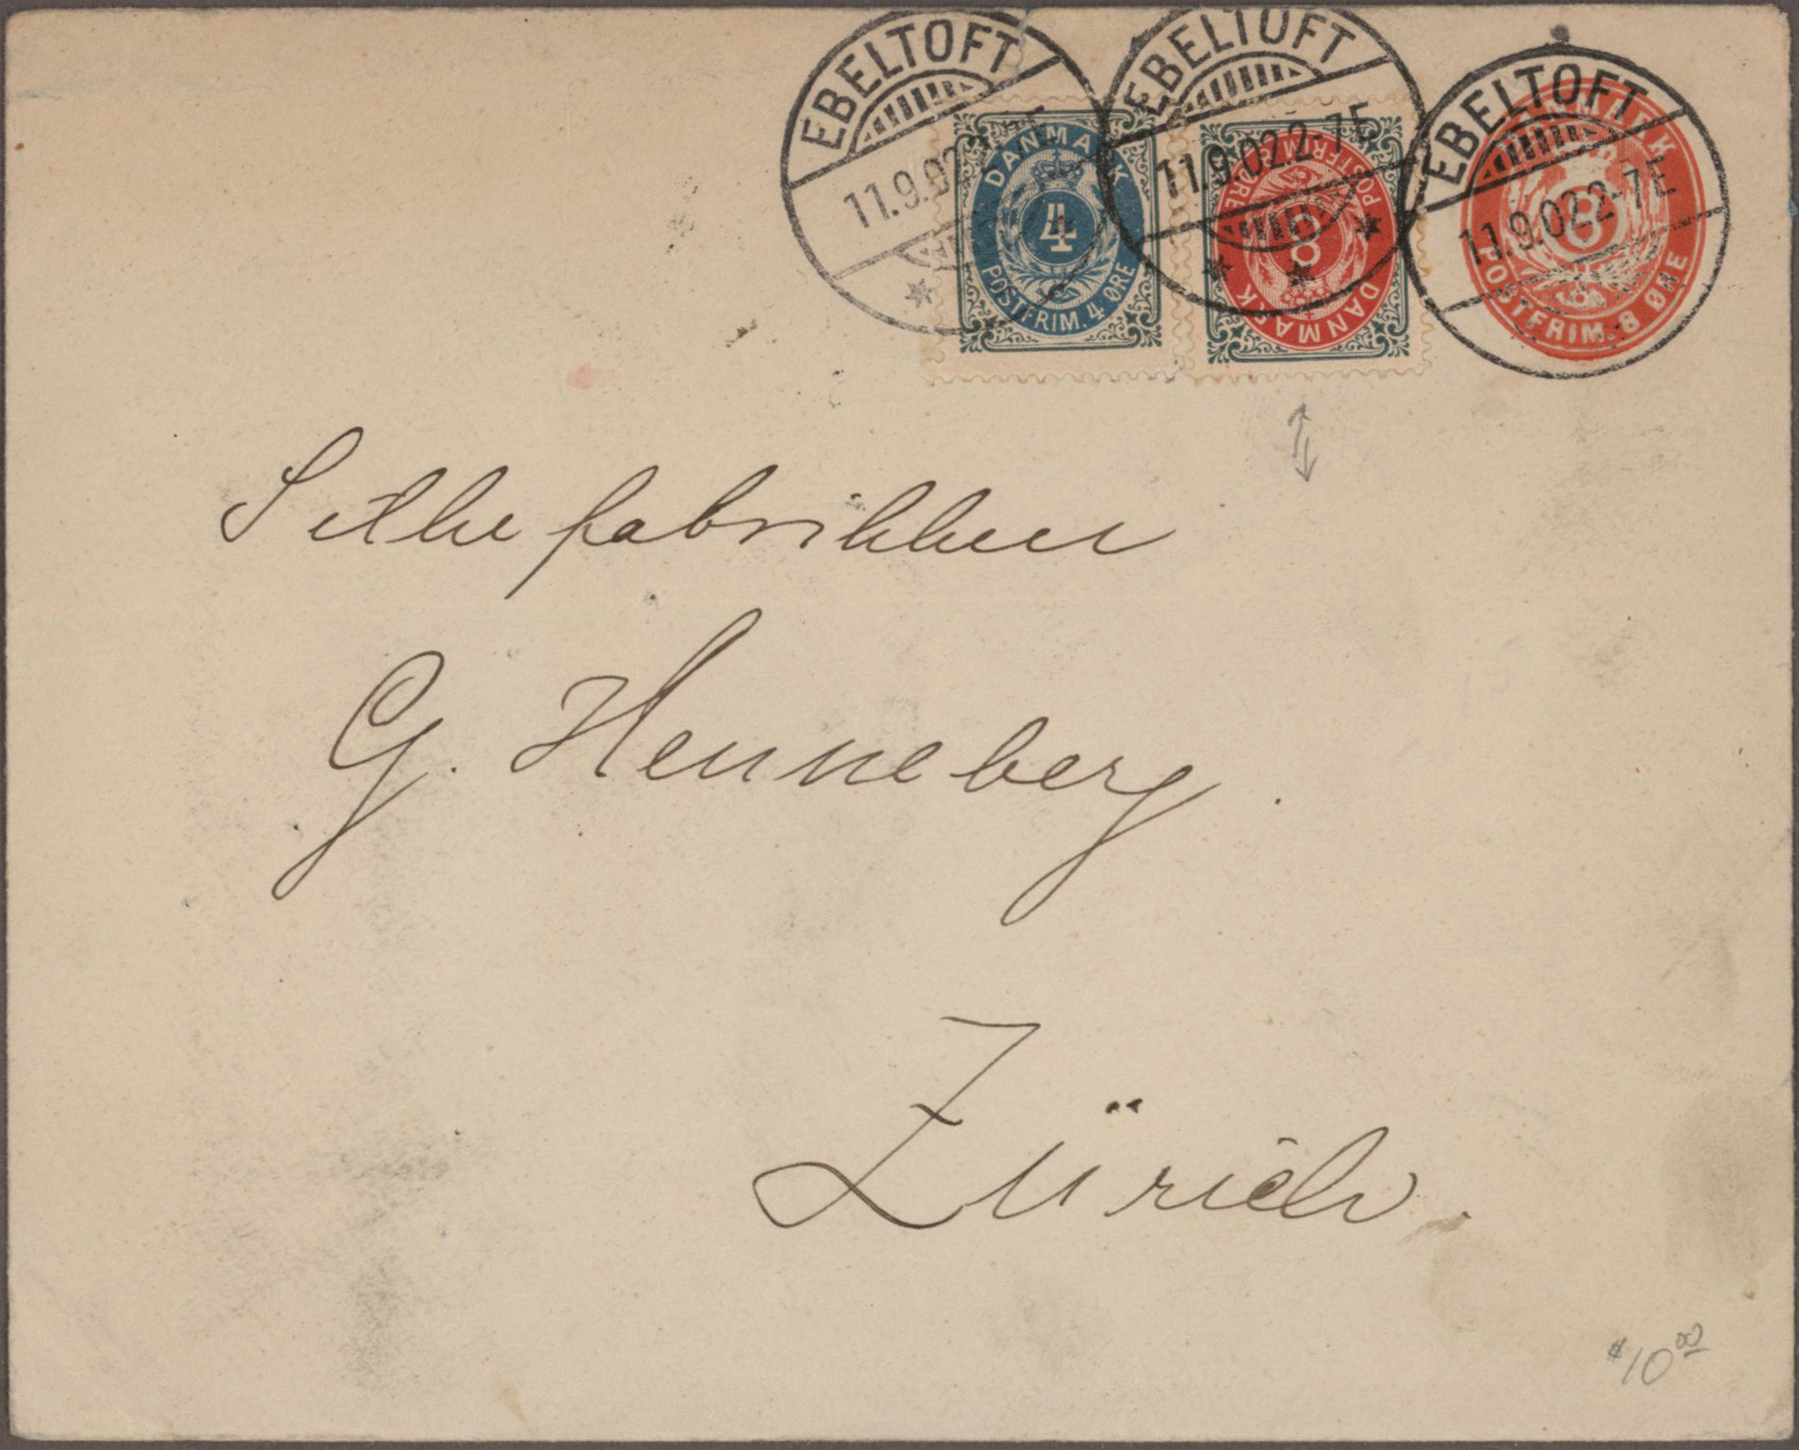 EBELTOFT
11.9.02 2-7E
EBELTOFT
11.9.02 2-7E
EBELTOFT
11.9.02 2-7E
DANMARK
4
POSTFRIM. 4 ØRE
DANMARK
8
POSTFRIM. 8 ØRE
DANMARK
8
POSTFRIM. 8 ØRE
Silkefabrikken
G. Henneberg.
Zürich.
$10.00